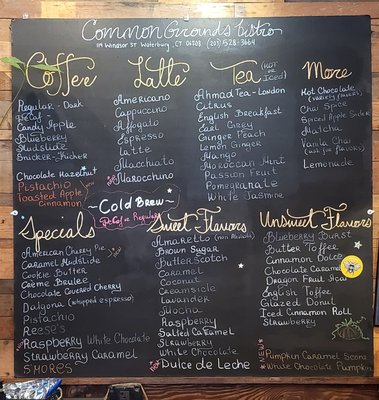 Common Grounds Bistro
119 Windsor ST Waterbury, CT 06708 (203) 528-3664
Coffee
Regular - Dark
Decaf -
Candy Apple
Blueberry
Mudslide
Snicker-
Chocolate Hazelnut
Pistachio
Toasted Apple
Cinnamon
Latte
Americano
Cappuccino
Affogato
Espresso
Latte
Macchiato
Marocchino
Tea (HOT or Iced)
Ahmad Tea - London
Citrus
English Breakfast
Earl Grey
Ginger Peach
Lemon Ginger
Mango
Moroccan Mint
Passion Fruit
Pomegranate
White Jasmine
More
Hot Chocolate
Chai Spice
Spiced Apple Cider
Matcha
Vanilla Chai
Lemonade
~Cold Brew~
Specials
American Cherry Pie
Caramel Mudslide
Cookie Butter
Crème Brulee
Chocolate Covered Cherry
Dalgona (whipped espresso)
Pistachio
Reese's
Raspberry White Chocolate
Strawberry Caramel
S'MORES
Sweet Flavors
Amaretto (non Alcoholic)
Brown Sugar
Butterscotch
Caramel
Coconut
Creamsicle
Lavander
Mocha
Raspberry
Salted Caramel
Strawberry
White Chocolate
Dulce de Leche
UnSweet Flavors
Blueberry Burst
Butter Toffee
Cinnamon Dolce
Chocolate Caramel
Dragon Fruit Acai
English Toffee
Glazed Donut
Iced Cinnamon Roll
Strawberry
NEW
Pumpkin Caramel Scone
White Chocolate Pumpkin